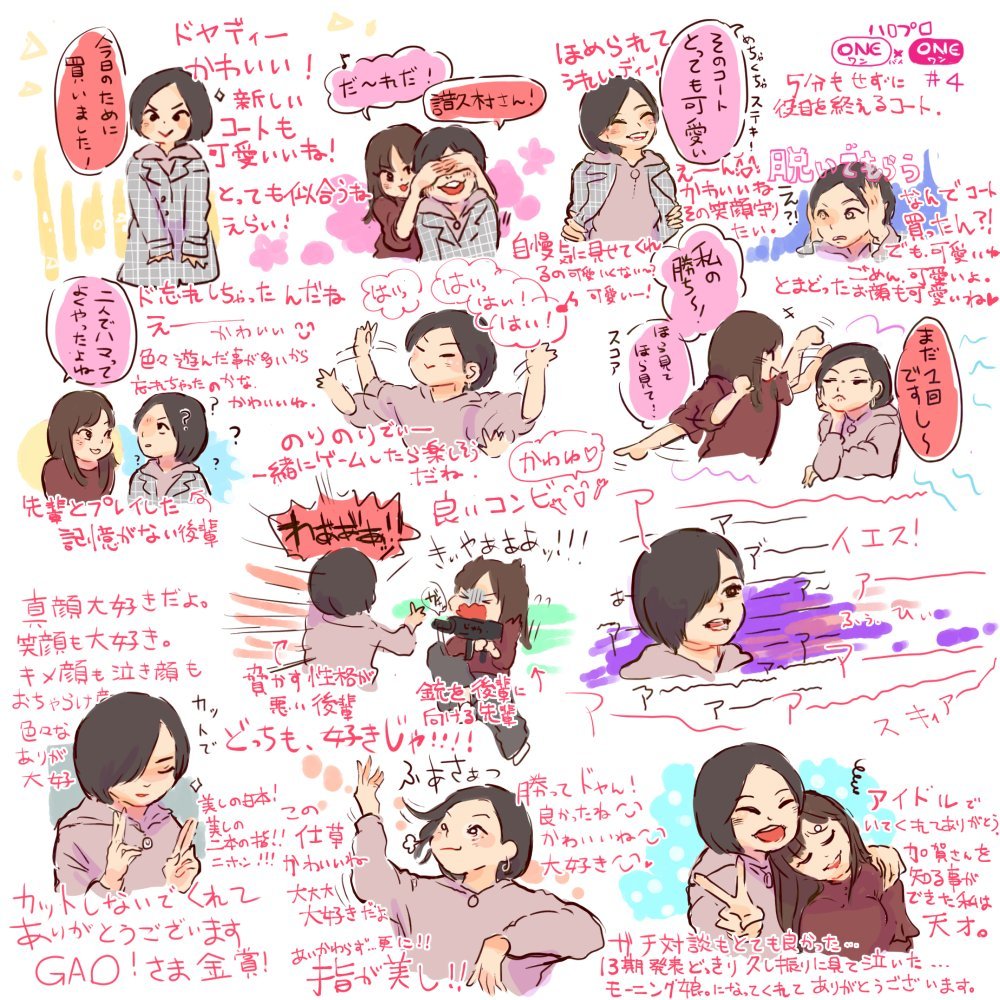 今日のために
買いました！
ドヤディー
かわいい！
新しい
コートも
可愛いいね！
とっても似合うね
えらい！
だ〜れだ！
譜久村さん！
ほめられて
うれいディー！
そのコート
とっても可愛い
めちゃくちゃステキー！
えーん
かわいいね
その笑顔守り
たい。
自慢気に見せてくれ
るの可愛いくない？
可愛いー！
ハロプロ
ONE×ONE
ワン ワン
#4
5分もせずに
役目を終えるコート。
脱いでもらう
え？！
なんでコート
買ったん？！
でも、可愛いね
ごめん、可愛いよ。
とまどったお顔も可愛いね♥
二人でハマって
よくやったよね
ド忘れしちゃったんだね
えー
かわいい
色々遊んだ事が多いから
忘れちゃったのかな。
かわいいね。
？
先輩とプレイした
記憶がない後輩
はいっ
はいっ
はい！
はい！
のりのりでぃー
一緒にゲームしたら楽しろう
だね。
私の
勝ち〜！
ほら見て
ほら見て！
スコア
まだ1回
ですし〜
かわゆ♡
良いコンビ
わぁあぁぁっ！！
きぃやぁぁあッ！！！
じゅう
脅かす性格が
悪い後輩
銃を後輩に
向ける先輩
どっちも、好きじゃ！！！！
ア
アー
アー
アー
イエス！
アー
ふぅ、ひぃ
アー
アー
アー
アー
アー
アー
スキィア
真顔大好きだよ。
笑顔も大好き。
キメ顔も泣き顔も
おちゃらけ
色々な
ありが
大好
カットで
美しの日本！
美しの
二本の指！！
ニホン！！！
カットしないでくれて
ありがとうございます
GAO！さま金賞！
ふぁさぁっ
この
仕草
かわいいね
大大大
大好きだよ
あいかわらず…更に！！
手指が美し！！
勝ってドヤん！
良かったね
かわいいね
大好き
アイドルで
いてくれてありがとう
加賀さんを
知る事が
できた私は
天才。
ガチ対談もとても良かった…
13期発表どっきり久し振りに見て泣いた…
モーニング娘。になってくれてありがとうございます。